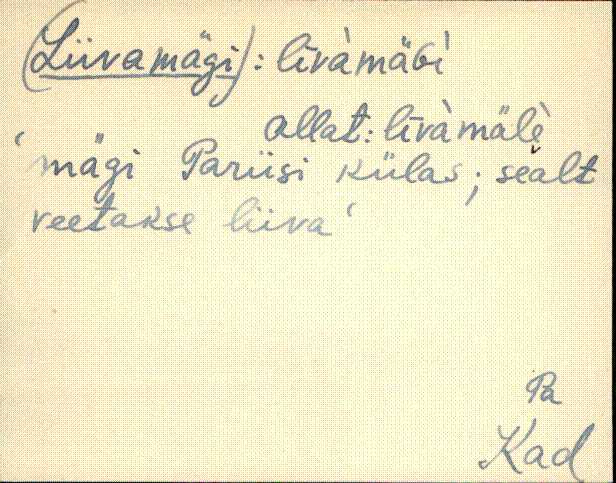 (Liivamägi): līvàmäɢì
allat: līvàmälè
‘mägi Pariisi külas; sealt
veetakse liiva‘
Pa
Kad